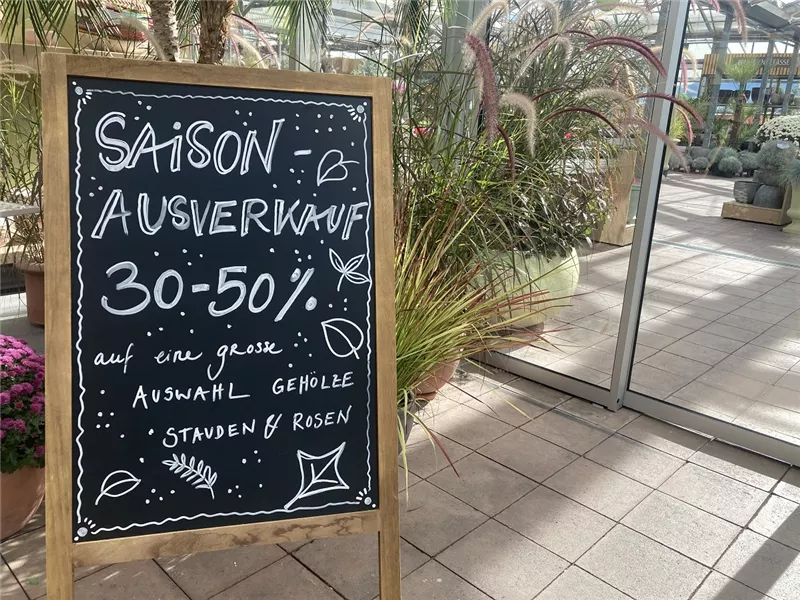 SAISON-
AUSVERKAUF
30-50%
auf eine grosse
AUSWAHL GEHÖLZE
STAUDEN & ROSEN